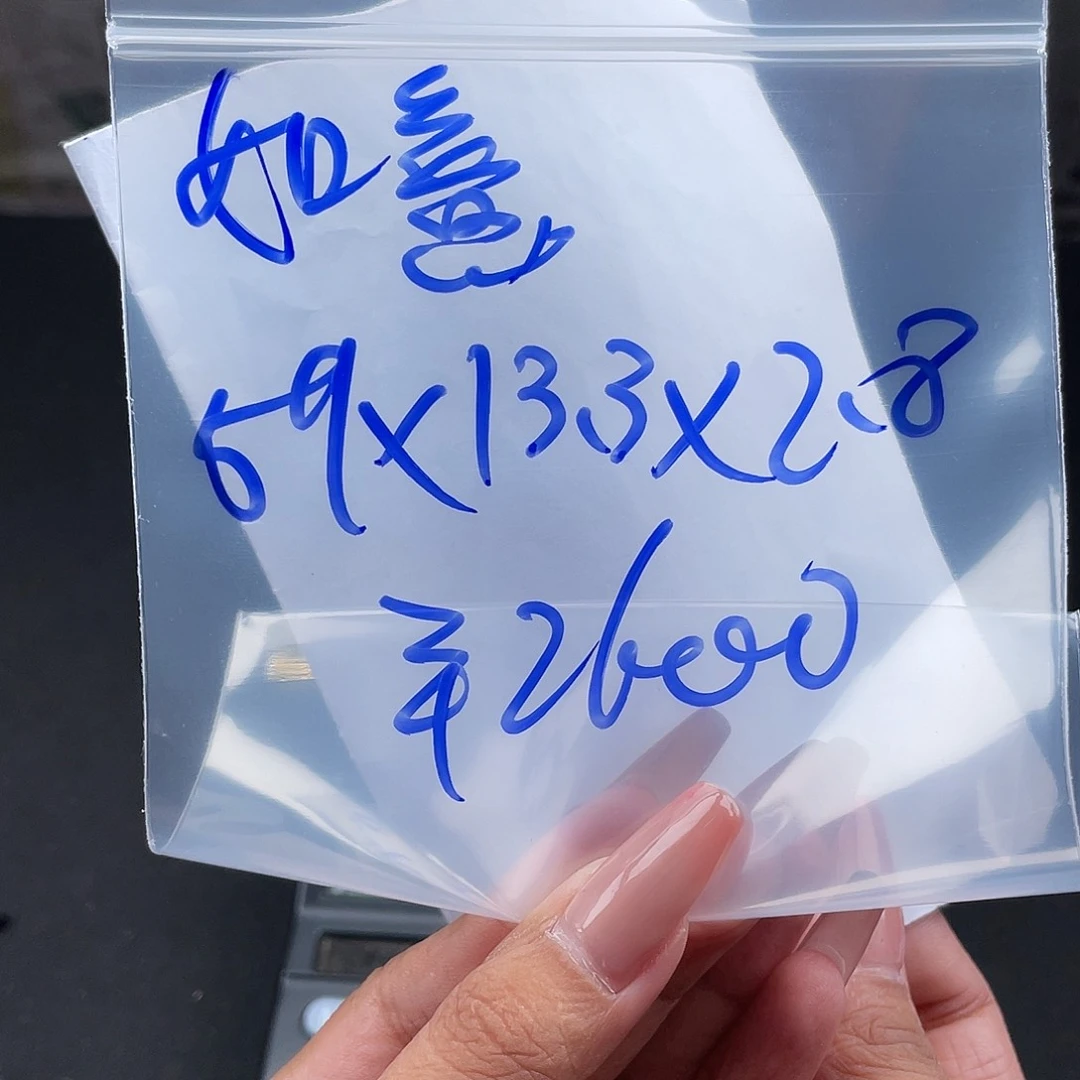 如意
59×13.3×2.8
¥2600